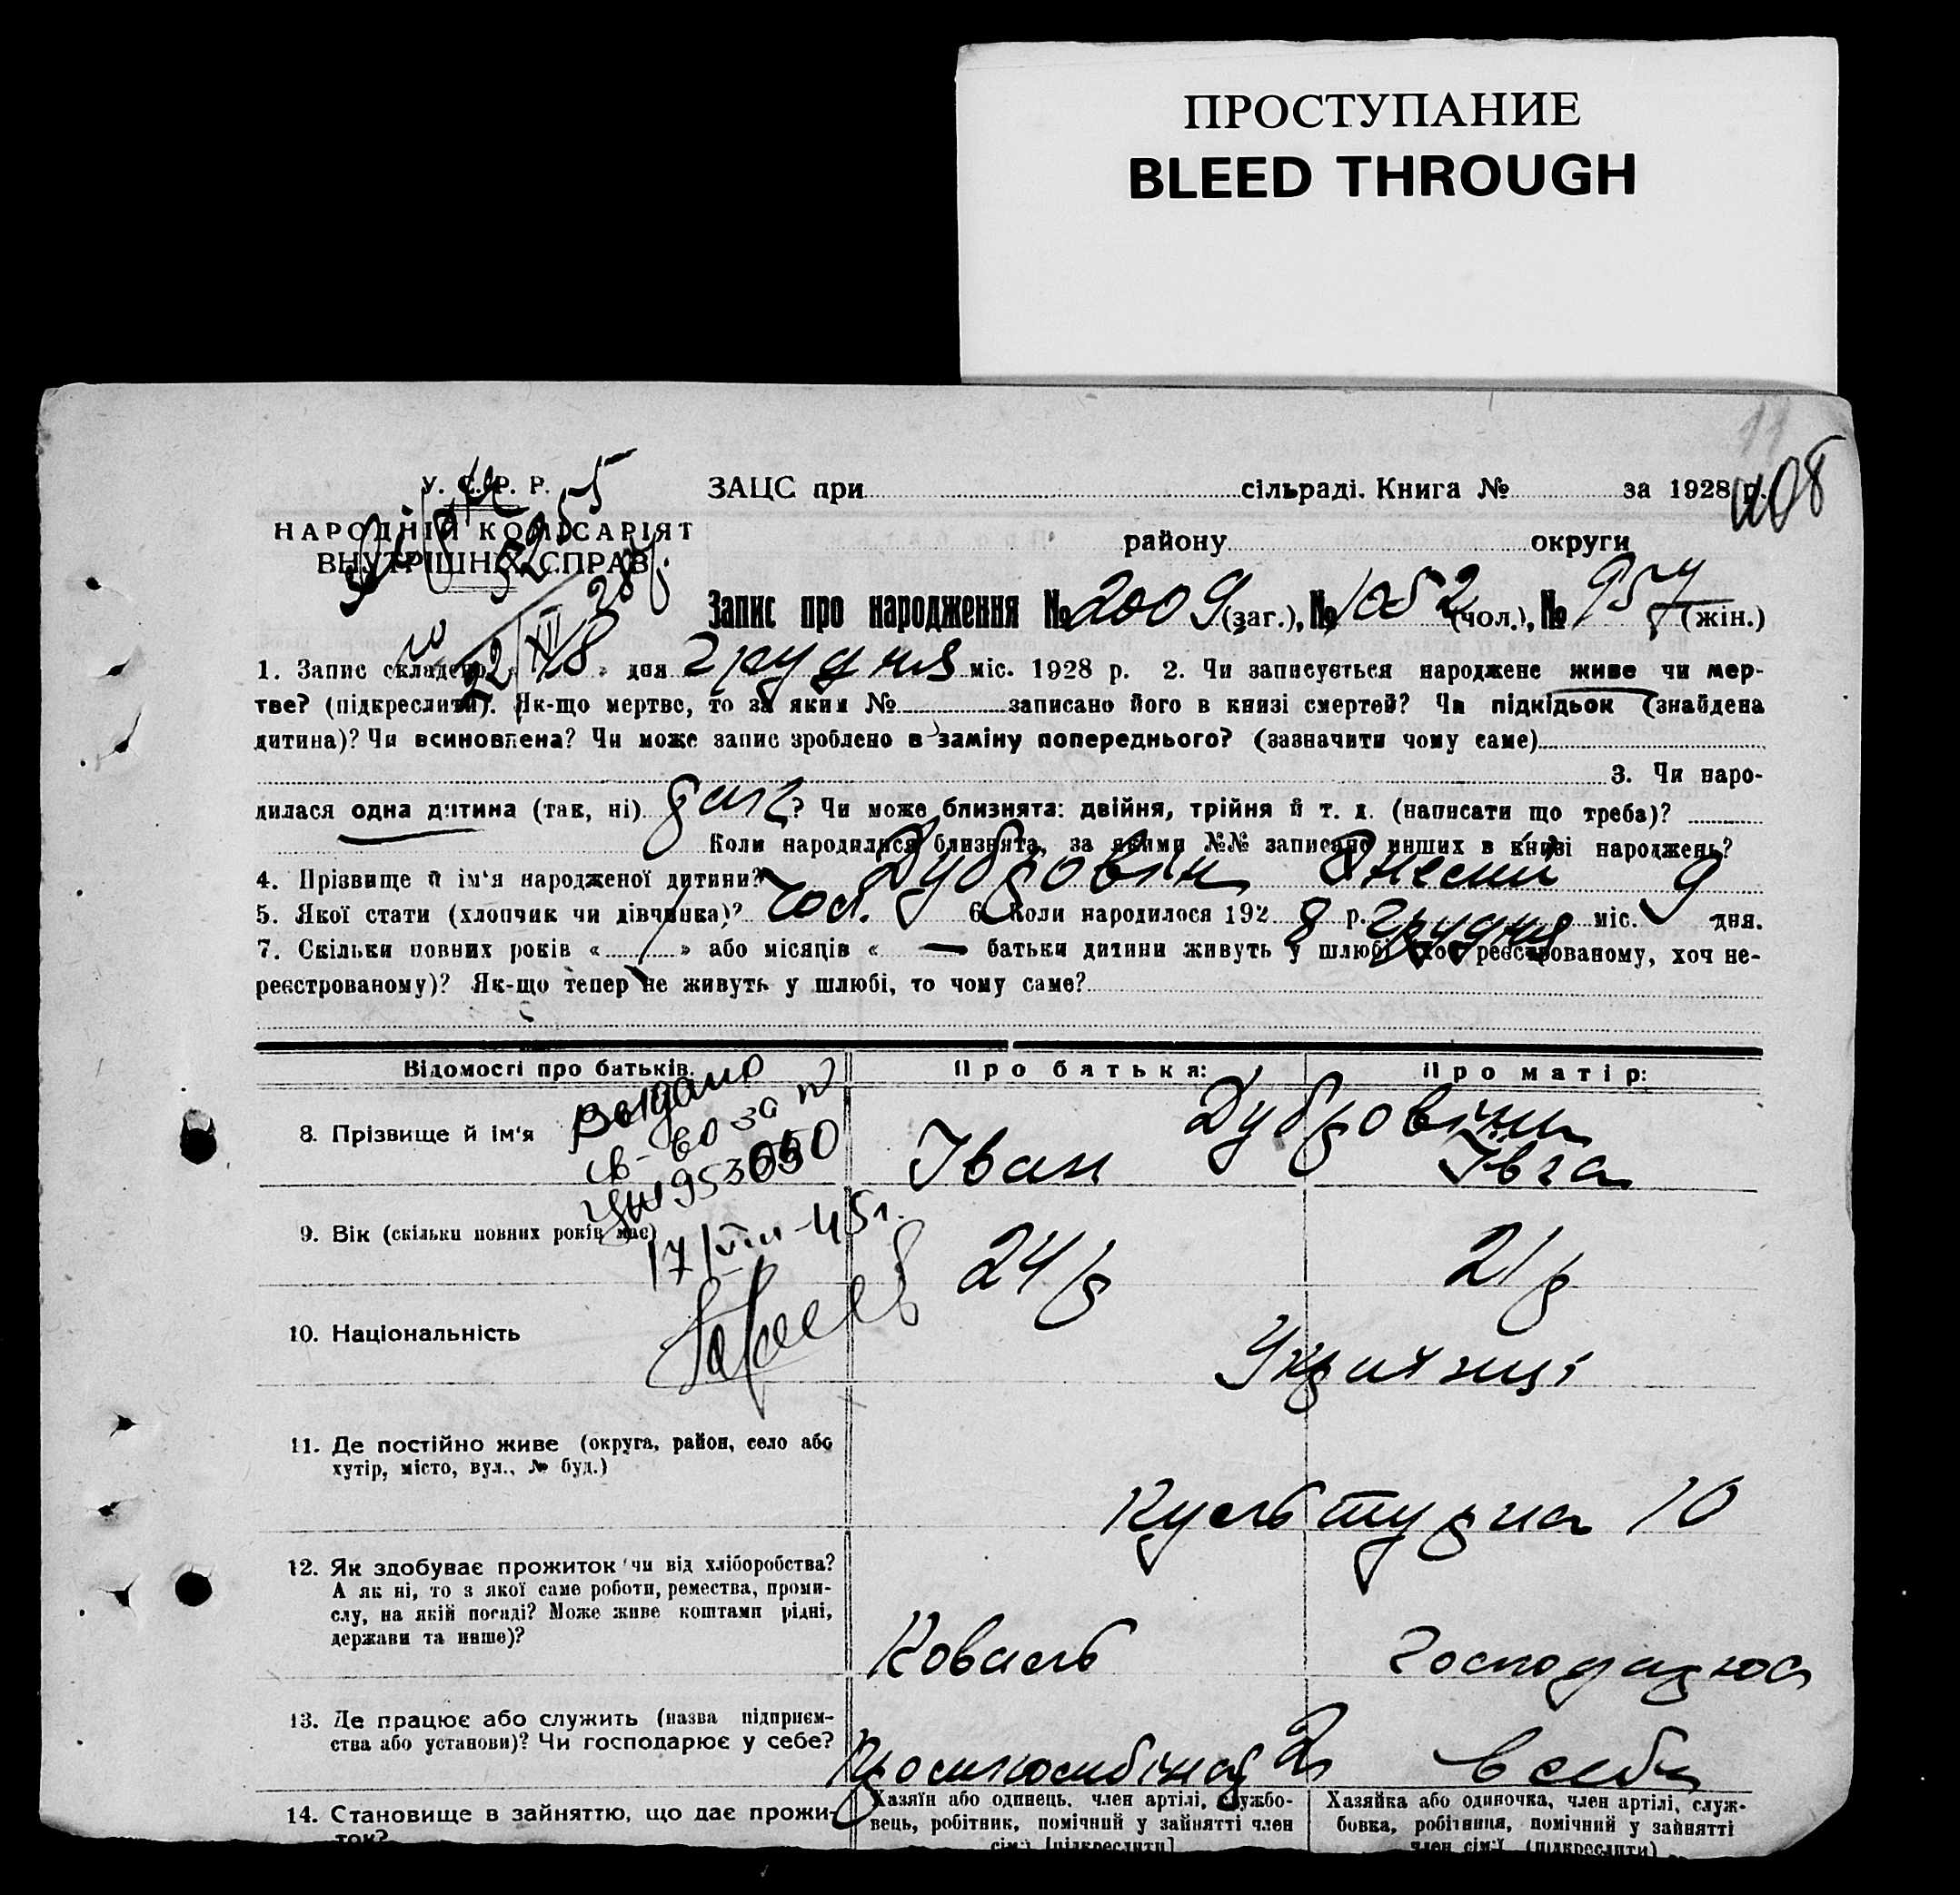 ПРОСТУПАНИЕ
BLEED THROUGH
408
У. С. Р. Р. ЗАЦС при сільраді. Книга № за 1928 р.
НАРОДНІЙ КОМІСАРІЯТ
району округи
ВНУТРІШНІХ СПРАВ.
Запис про народження № 2009 (заг.), № 1052 (чол.), № 957 (жін.)
1. Запис складено « 22 » дня грудня міс. 1928 р. 2. Чи записується народжене живе чи мер-
тве? (підкреслити). Як-що мертве, то за яким № записано його в книзі смертей? Чи підкідьок (знайдена
дитина)? Чи всиновлена? Чи може запис зроблено в заміну попереднього? (зазначити чому саме)
3. Чи наро-
дилася одна дитина (так, ні) ? Чи може близнята: двійня, трійня й т. д. (написати що треба)?
Коли народилися близнята, за якими №№ записано инших в книзі народжень?
4. Прізвище й ім'я народженої дитини? Дубровін
5. Якої стати (хлопчик чи дівчинка)? Чол. 6. Коли народилося 192 8 р. грудня міс. 9 дня.
7. Скільки повних років « 1 » або місяців « — батьки дитини живуть у шлюбі хоч реєстрованому, хоч не-
реєстрованому)? Як-що тепер не живуть у шлюбі, то чому саме?
Відомості про батьків. Про батька: Про матір:
Видано
св-во за №
953050
17/VIII-45 г.
Дубровіни
8. Прізвище й ім'я Іван Івга
9. Вік (скільки повних років має) 24 р 21 р
10. Національність Українці
11. Де постійно живе (округа, район, село або
хутір, місто, вул., № буд.)
Культурна 10
12. Як здобуває прожиток чи від хліборобства?
А як ні, то з якої саме роботи, ремества, проми-
слу, на якій посаді? Може живе коштами рідні,
держави та инше)?
Коваль Господарює
13. Де працює або служить (назва підприєм-
ства або установи)? Чи господарює у себе?
в себе
14. Становище в зайняттю, що дає прожи-
ток?
Хазяїн або одинець, член артілі, службо-
вець, робітник, помічний у зайнятті член
сім'ї [підкреслити]
Хазяйка або одиночка, член артілі, служ-
бовка, робітниця, помічний у зайнятті
член сім'ї (підкреслити)